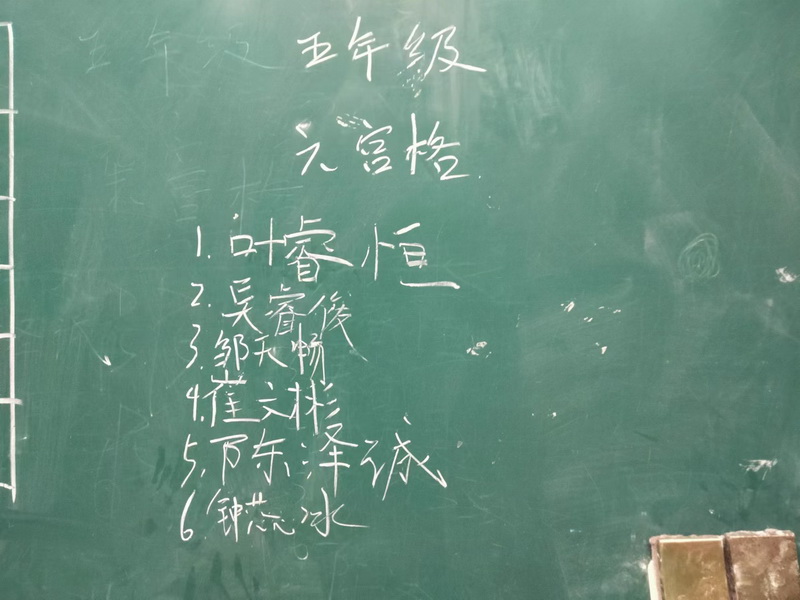 五年级
六宫格
1.叶睿恒
2.吴睿俊
3.邹天畅
4.崔文彬
5.陈泽诚
6.钟蕊冰